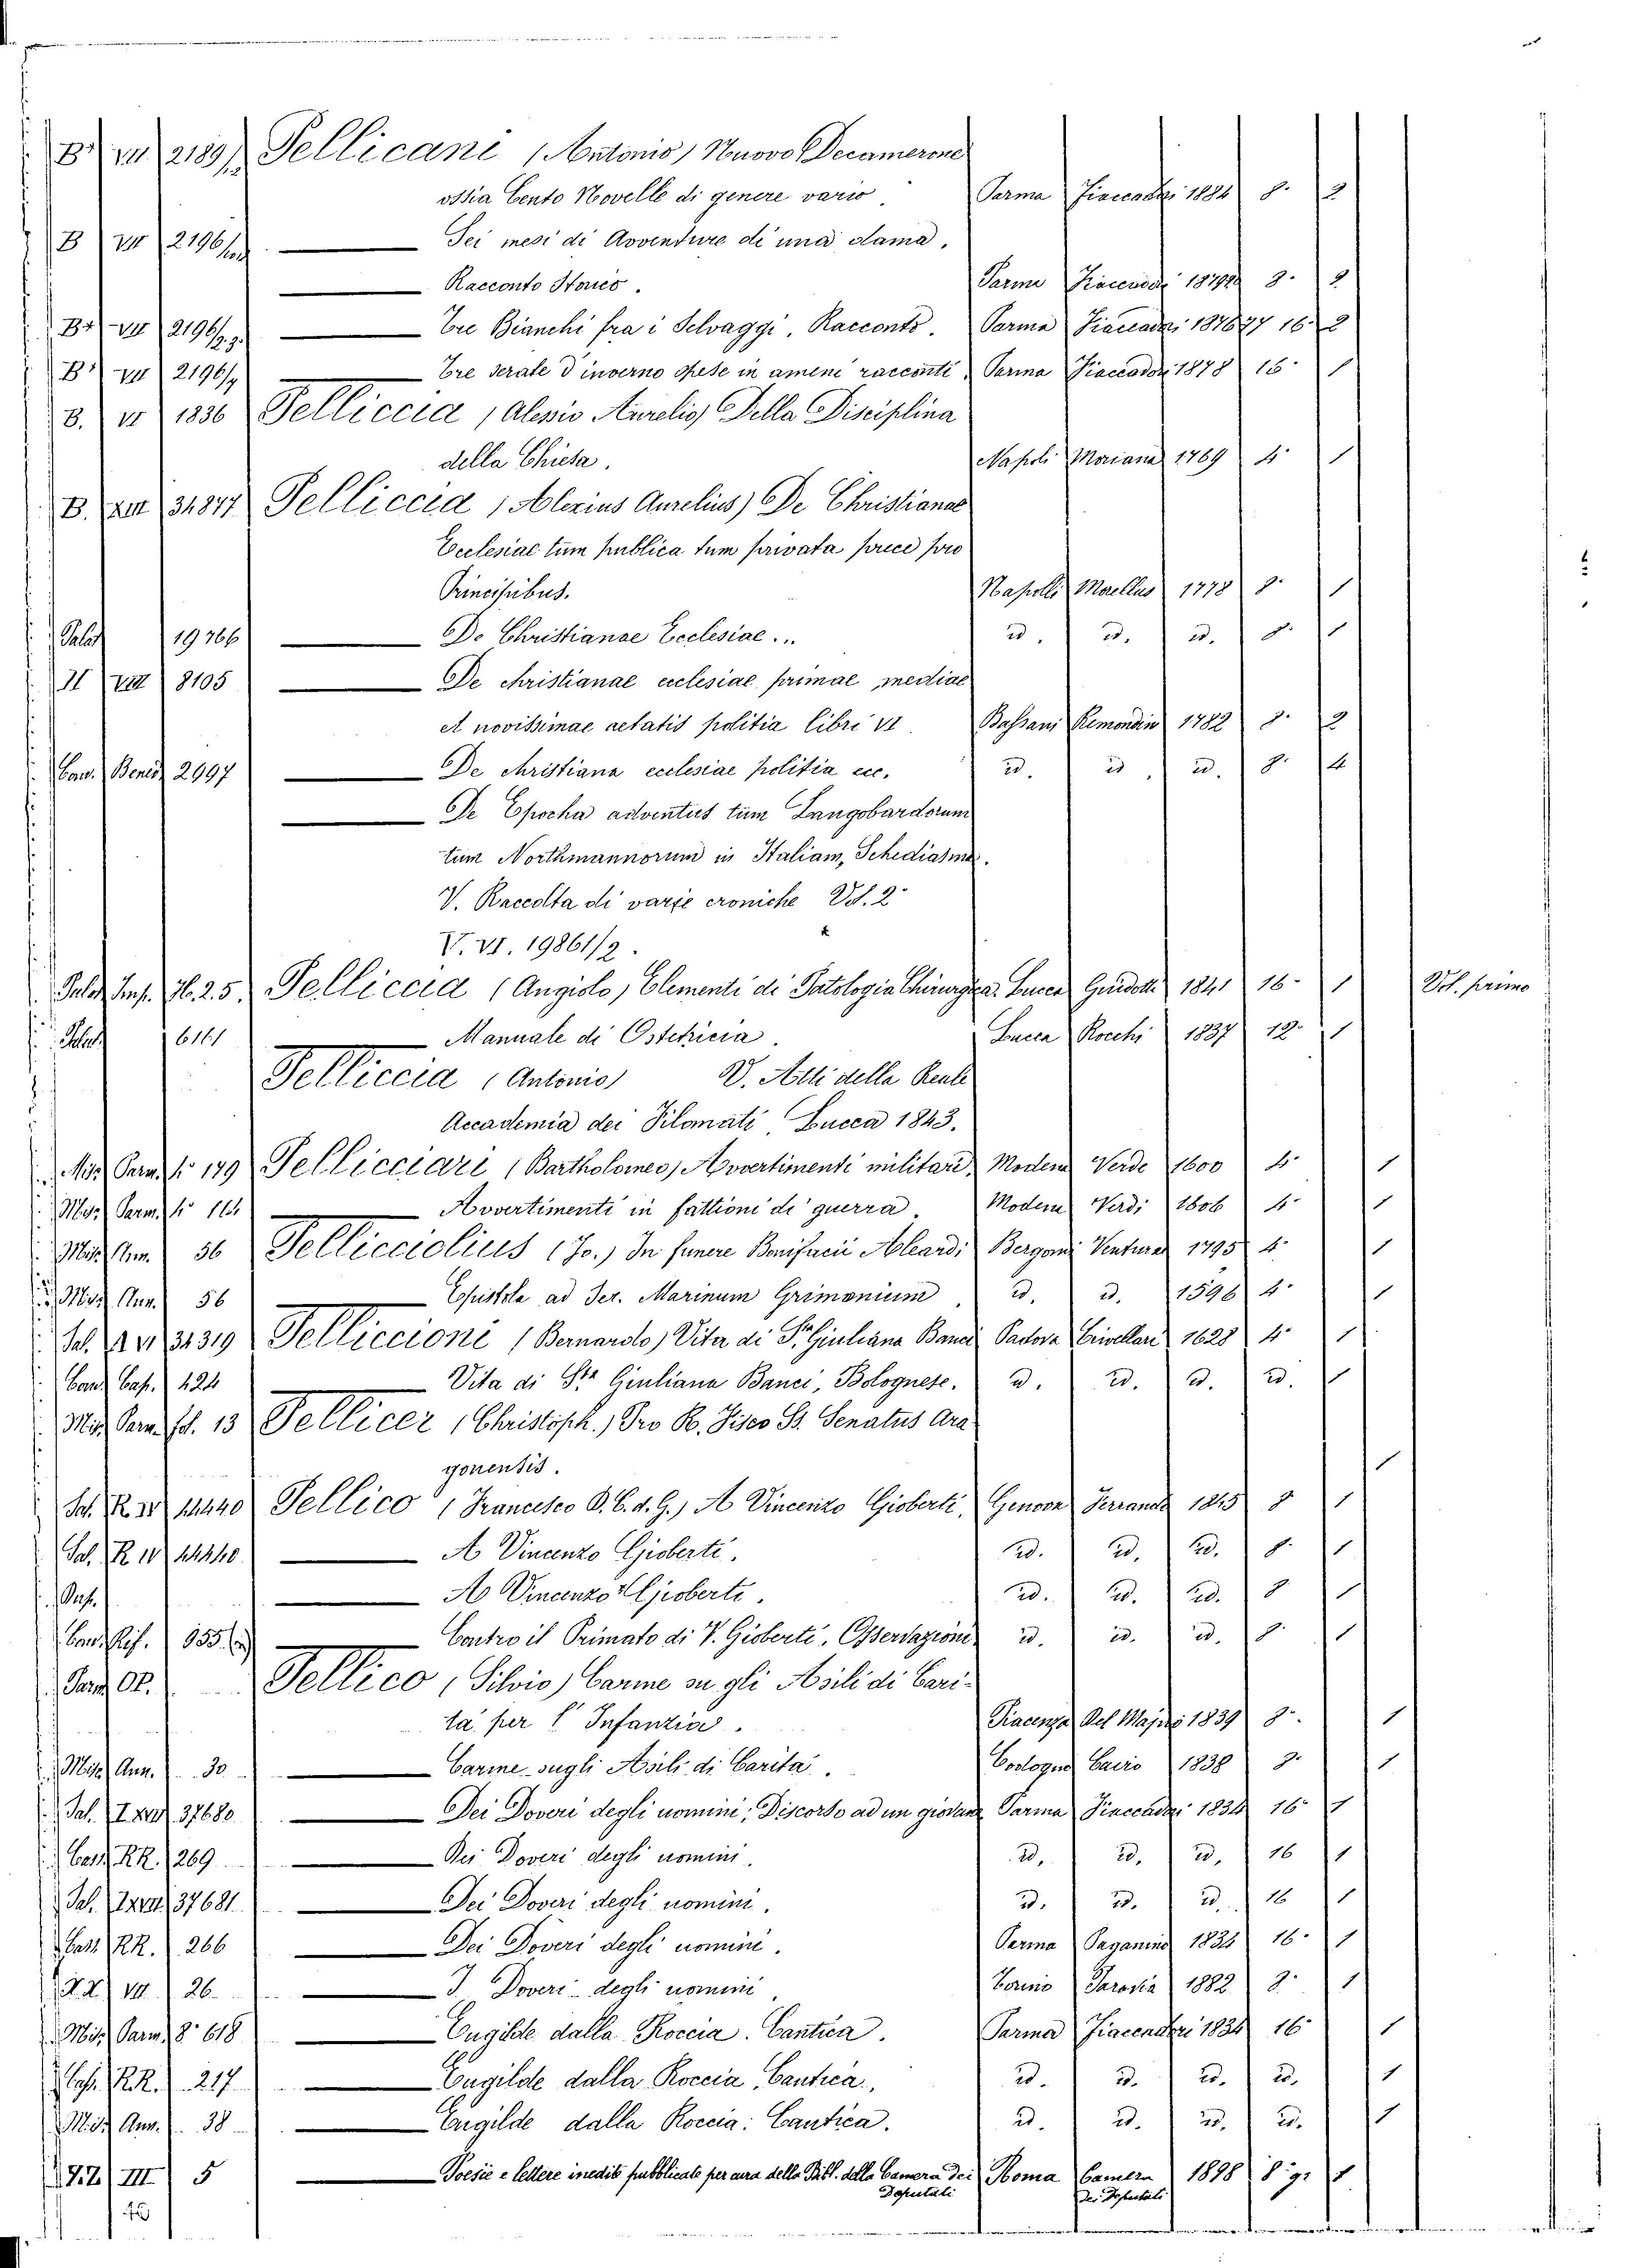 B VII 2189/ Pellicani (Antonio) Nuovo Decamerone
ossia Cento Novelle di genere vario. Parma Fiaccadori 1884 8° 2
B VII 2196/ Sei mesi di Avventure di una dama.
Racconto Storico. Parma Fiaccadori 8° 2
B VII 2196/ Tre Bianchi fra i Selvaggi, Racconto. Parma Fiaccadori 1876 77 16° 2
B VII 2196/ Tre serate d'inverno spese in ameni racconti. Parma Fiaccadori 1878 16° 1
B. VI 1836 Pelliccia (Alesio Aurelio) Della Disciplina
della Chiesa. Napoli Moriana 1769 4° 1
B. XIII 31.877 Pelliccia (Alexius Aurelius) De Christianae
Ecclesiae tum publica tum privata prece pro
Principibus. Napoli Morellus 1778 8° 1
Palat 19766 De Christianae Ecclesiae... id. id. id. 8° 1
II VIII 8105 De christianae ecclesiae primae mediae
et novissimae aetatis politia libri VI. Bassani Remondin 1782 8° 2
Cav. Bened 2997 De christiana ecclesiae politia ecc. id. id. id. 8° 4
De Epocha adventus tum Langobardorum
tum Northmannorum in Italiam, Schediasma.
V. Raccolta di varie croniche Vol. 2°
V. VI. 19861/2.
Palat Imp. 16.25. Pelliccia (Angiolo) Elementi di Patologia Chirurgica. Lucca Guidotti 1841 16° 1 Vol. primo
Palat 6161 Manuale di Ostetricia. Lucca Rocchi 1837 12° 1
Pelliccia (Antonio) V. Atti della Reale
Accademia dei Filomati, Lucca 1843.
Mis. Parm. 4° 149 Pellicciari (Bartholomeo) Avvertimenti militari, Modena Verdi 1600 4° 1
Mis. Parm. 4° Avvertimenti in fattioni di guerra. Modena Verdi 1606 4° 1
Mis. Ann. 56 Pelliccioliis (Jo.) In funere Bonifacii Aleardi Bergomi Ventura 1795 4° 1
Mis. Ann. 56 Epistola ad Ser. Marinum Grimonium id. id. 1596 4° 1
Sal. 31319 Pelliccioni (Bernardo) Vita di Sta Giuliana Banci Padova Crivellari 1628 4° 1
Conv. Cap. 424 Vita di Sta Giuliana Banci, Bolognese. id. id. id. id. 1
Mis. Parm. fol. 13 Pellicer (Christoph.) Pro R. Fisco St. Senatus Ara
gonensis. 1
Sal. R. IV 44440 Pellico (Francesco D. C. d. G.) A Vincenzo Gioberti, Genova Ferrando 1845 8 1
Sal. R IV 44440 A Vincenzo Gioberti. id. id. id. 8° 1
A Vincenzo Gioberti. id. id. id. 8° 1
Conv. Rif. 955. Contro il Primato di V. Gioberti, Osservazioni id. id. id. 8° 1
Parm OP. Pellico (Silvio) Carme su gli Asili di Cari-
tà per l'Infanzia. Piacenza Del Majno 1839 8° 1
Mis. Ann. 30 Carme sugli Asili di Carità. Codogno Cairo 1838 8° 1
Sal. I XVII 37680 Dei Doveri degli uomini, Discorso ad un giovane Parma Fiaccadori 1834 16° 1
Cass RR. 269 Dei Doveri degli uomini. id. id. id. 16 1
Sal. I XVII 37681 Dei Doveri degli uomini. id. id. id. 16 1
Cass. RR. 266 Dei Doveri degli uomini. Parma Paganino 1834 16° 1
VII 26 I Doveri degli uomini. Torino Paravia 1882 8° 1
Mis. Parm. 8° 618 Eugilde dalla Roccia. Cantica. Parma Fiaccadori 1834 16° 1
Cass. RR. 217 Eugilde dalla Roccia, Cantica. id. id. id. id. 1
Mis. Ann. 38 Eugilde dalla Roccia: Cantica. id. id. id. id. 1
III 5 Poesie e lettere inedite pubblicate per cura della Bibl. della Camera dei Deputati Roma Camera dei Deputati 1898 8° gr. 1